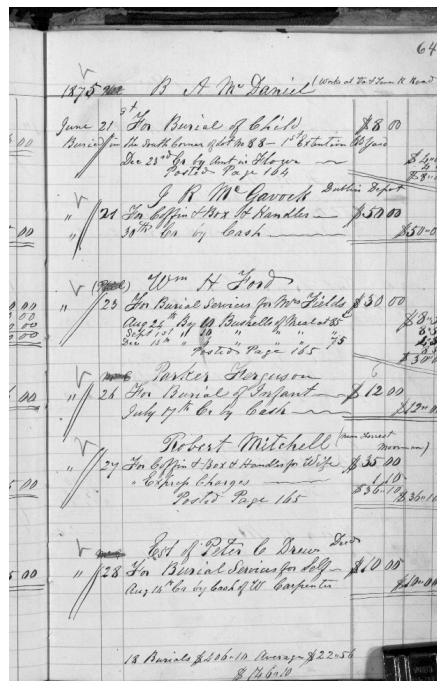 64
1875 B A McDaniel (Works at Va & Tenn R Road
June 21st For Burial of Child $8 00
Buried in the South Corner of Lot No 88 – 1st Extention
Dec 23rd Cr by Amt in Flour
Posted Page 164 $8-00
J R McGavock Dublin Depot
" 21 For Coffin & Box & Handles $50 00
" 30th Cr by Cash $50-00
Wm H Ford
" 23 For Burial Services for Mrs Fields $30 00
Aug 24th By 10 Bushells of Meal at 85
Sept 1st " 10
Dec 15th " " " 75
Posted Page 165 $30 00
Parker Ferguson
" 26 For Burial of Infant $12 00
July 17th Cr by Cash $12-00
Robert Mitchell (near Forrest
" 27 For Coffin & Box & Handles for Wife $35 00
" Express Charges 1 10
$36-10
Posted Page 165 $36-10
Est of Peter C Drew Decd
" 28 For Burial Services for Self $10 00
Aug 14th Cr by Cash of W Carpenter $10-00
18 Burials $406-10 Average $22-56